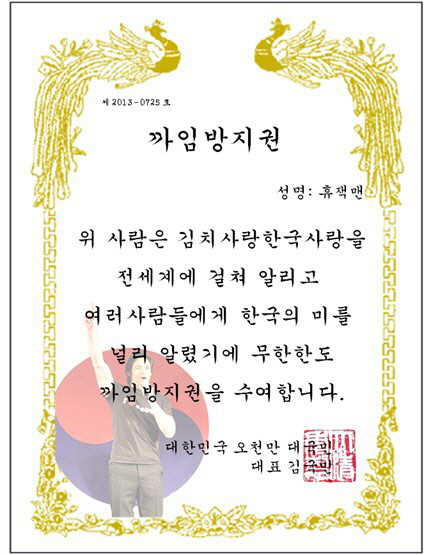 제 2013-0725 호
까임방지권
성명: 휴잭맨
위 사람은 김치사랑한국사랑을
전세계에 걸쳐 알리고
여러사람들에게 한국의 미를
널리 알렸기에 무한한도
까임방지권을 수여합니다.
대한민국 오천만 대국민
대표 김국민